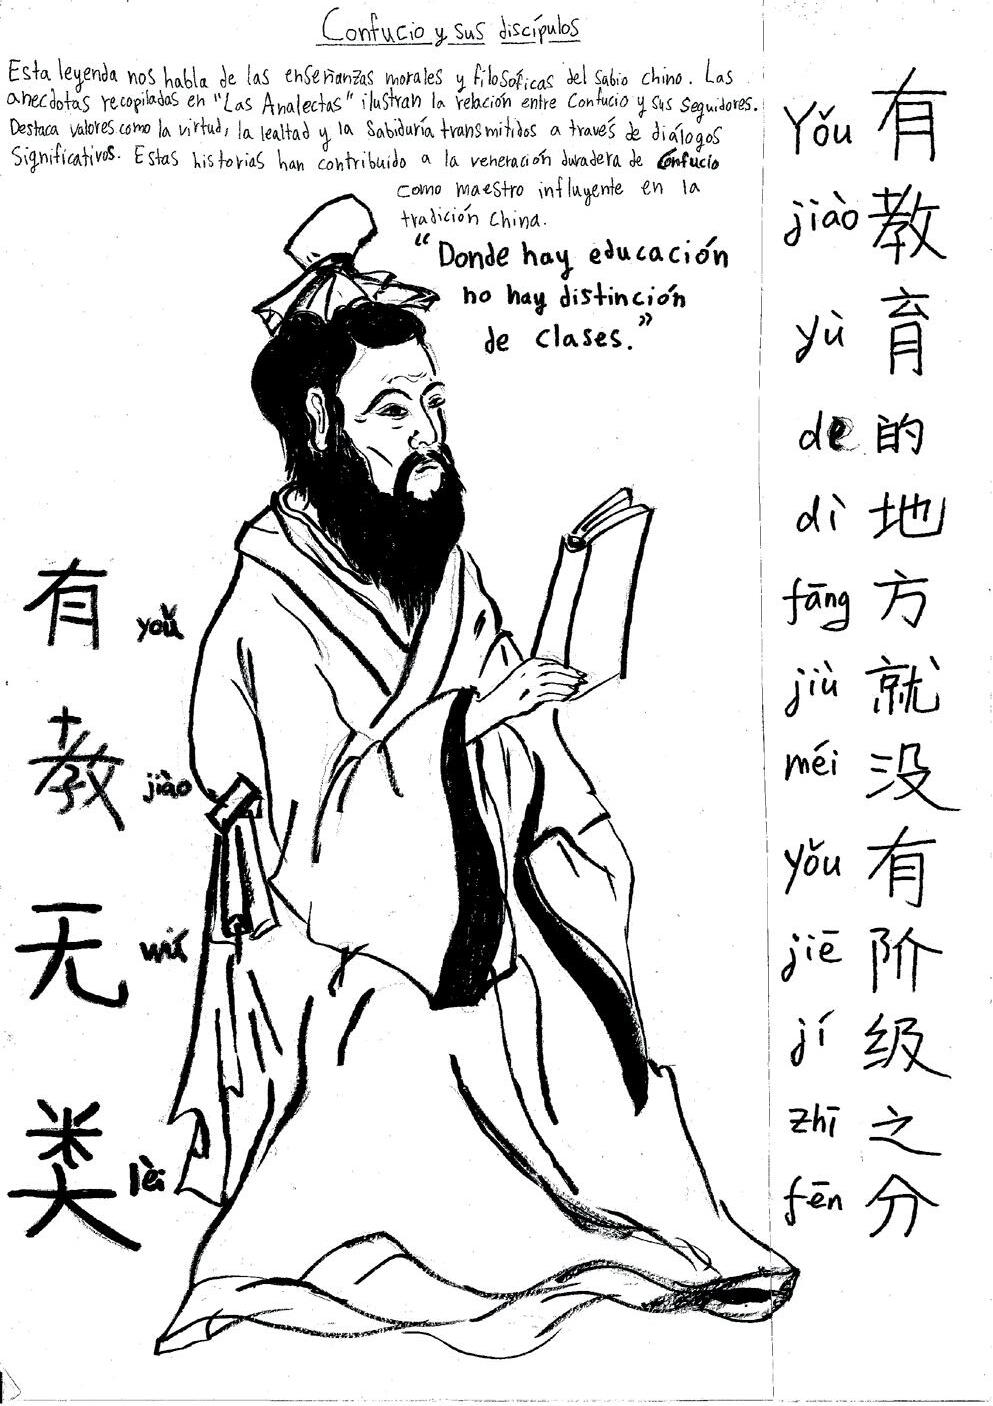 Confucio y sus discípulos
Esta leyenda nos habla de las enseñanzas morales y filosóficas del sabio chino. Las
anecdotas recopiladas en "Las Analectas" ilustran la relación entre Confucio y sus seguidores.
Destaca valores como la virtud, la lealtad y la sabiduría transmitidos a través de diálogos
significativos. Estas historias han contribuido a la veneración duradera de Confucio
como maestro influyente en la
tradición china.
"Donde hay educación
no hay distinción
de clases."
有 yoǔ
教 jiào
无 wú
类 lèi
Yǒu 有
jiào 教
yù 育
de 的
dì 地
fāng 方
jiù 就
méi 没
yǒu 有
jiē 阶
jí 级
zhī 之
fēn 分